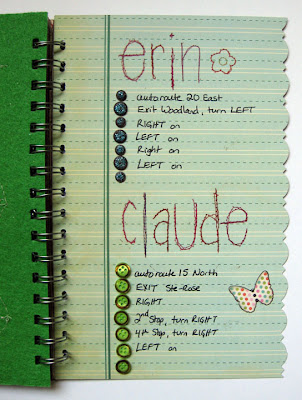 erin
autoroute 20 East
Exit Woodland, turn LEFT
RIGHT on
LEFT on
Right on
LEFT on
claude
autoroute 15 North
EXIT Ste-Rose
RIGHT
2nd Stop, turn RIGHT
4th Stop, turn RIGHT
LEFT on